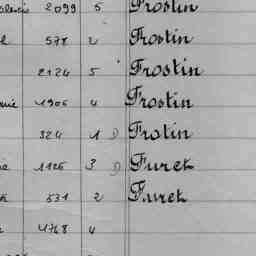 2099 5 Frostin
578 2 Frostin
2124 5 Frostin
1906 4 Frostin
324 1 D Frotin
1126 3 D Furet
531 2 Furet
4768 4